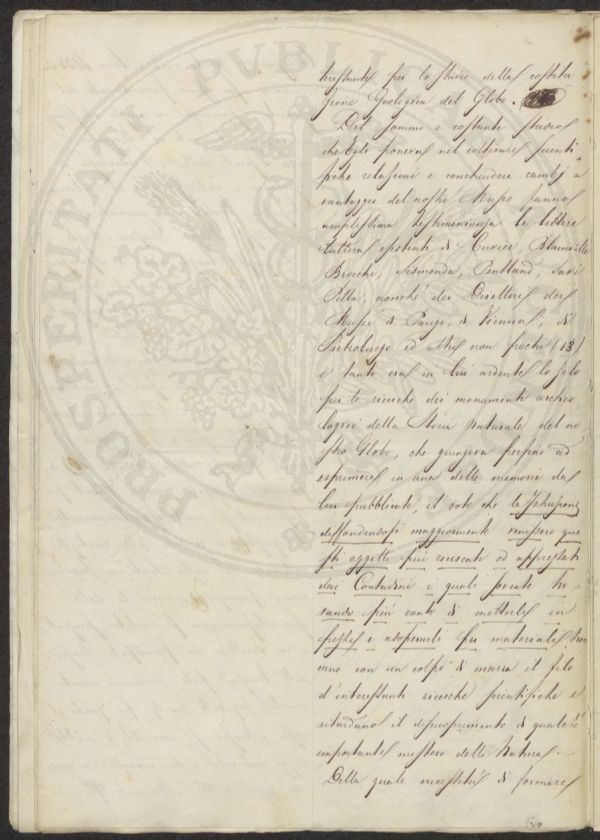 teressante per lo studio della costitu
zione Geologica del Globo.
Del sommo e costante studio
che Egli poneva nel coltivare scienti
fiche relazioni e conchiudere cambj a
vantaggio del nostro Museo fanno
amplissima testimonianza le lettere
tuttora esistenti di Cuvier, Blainville
Brocchi, Sismonda, Pentland, Savi
Pilla, nonché dei Direttori dei
Musei di Parigi, di Vienna, di
Pietroburgo ed altri non pochi (13)
e tanto era in lui ardente lo zelo
per le ricerche dei monumenti archeo
logici della Storia Naturale del no
stro Globo, che giungeva persino ad
esprimere in una delle memorie da
lui pubblicate, il voto che le Istruzioni
diffondendosi maggiormente venissero que
sti oggetti più ricercati ed apprezzati
dai Contadini i quali forente tro
vando più conto di metterli in
pezzi e adoperarli per materiali tron
cano con un colpo di marra il filo
d'interessanti ricerche scientifiche e
ritardano il discoprimento di qualche
importante mistero della Natura.
Della quale necessità di formare